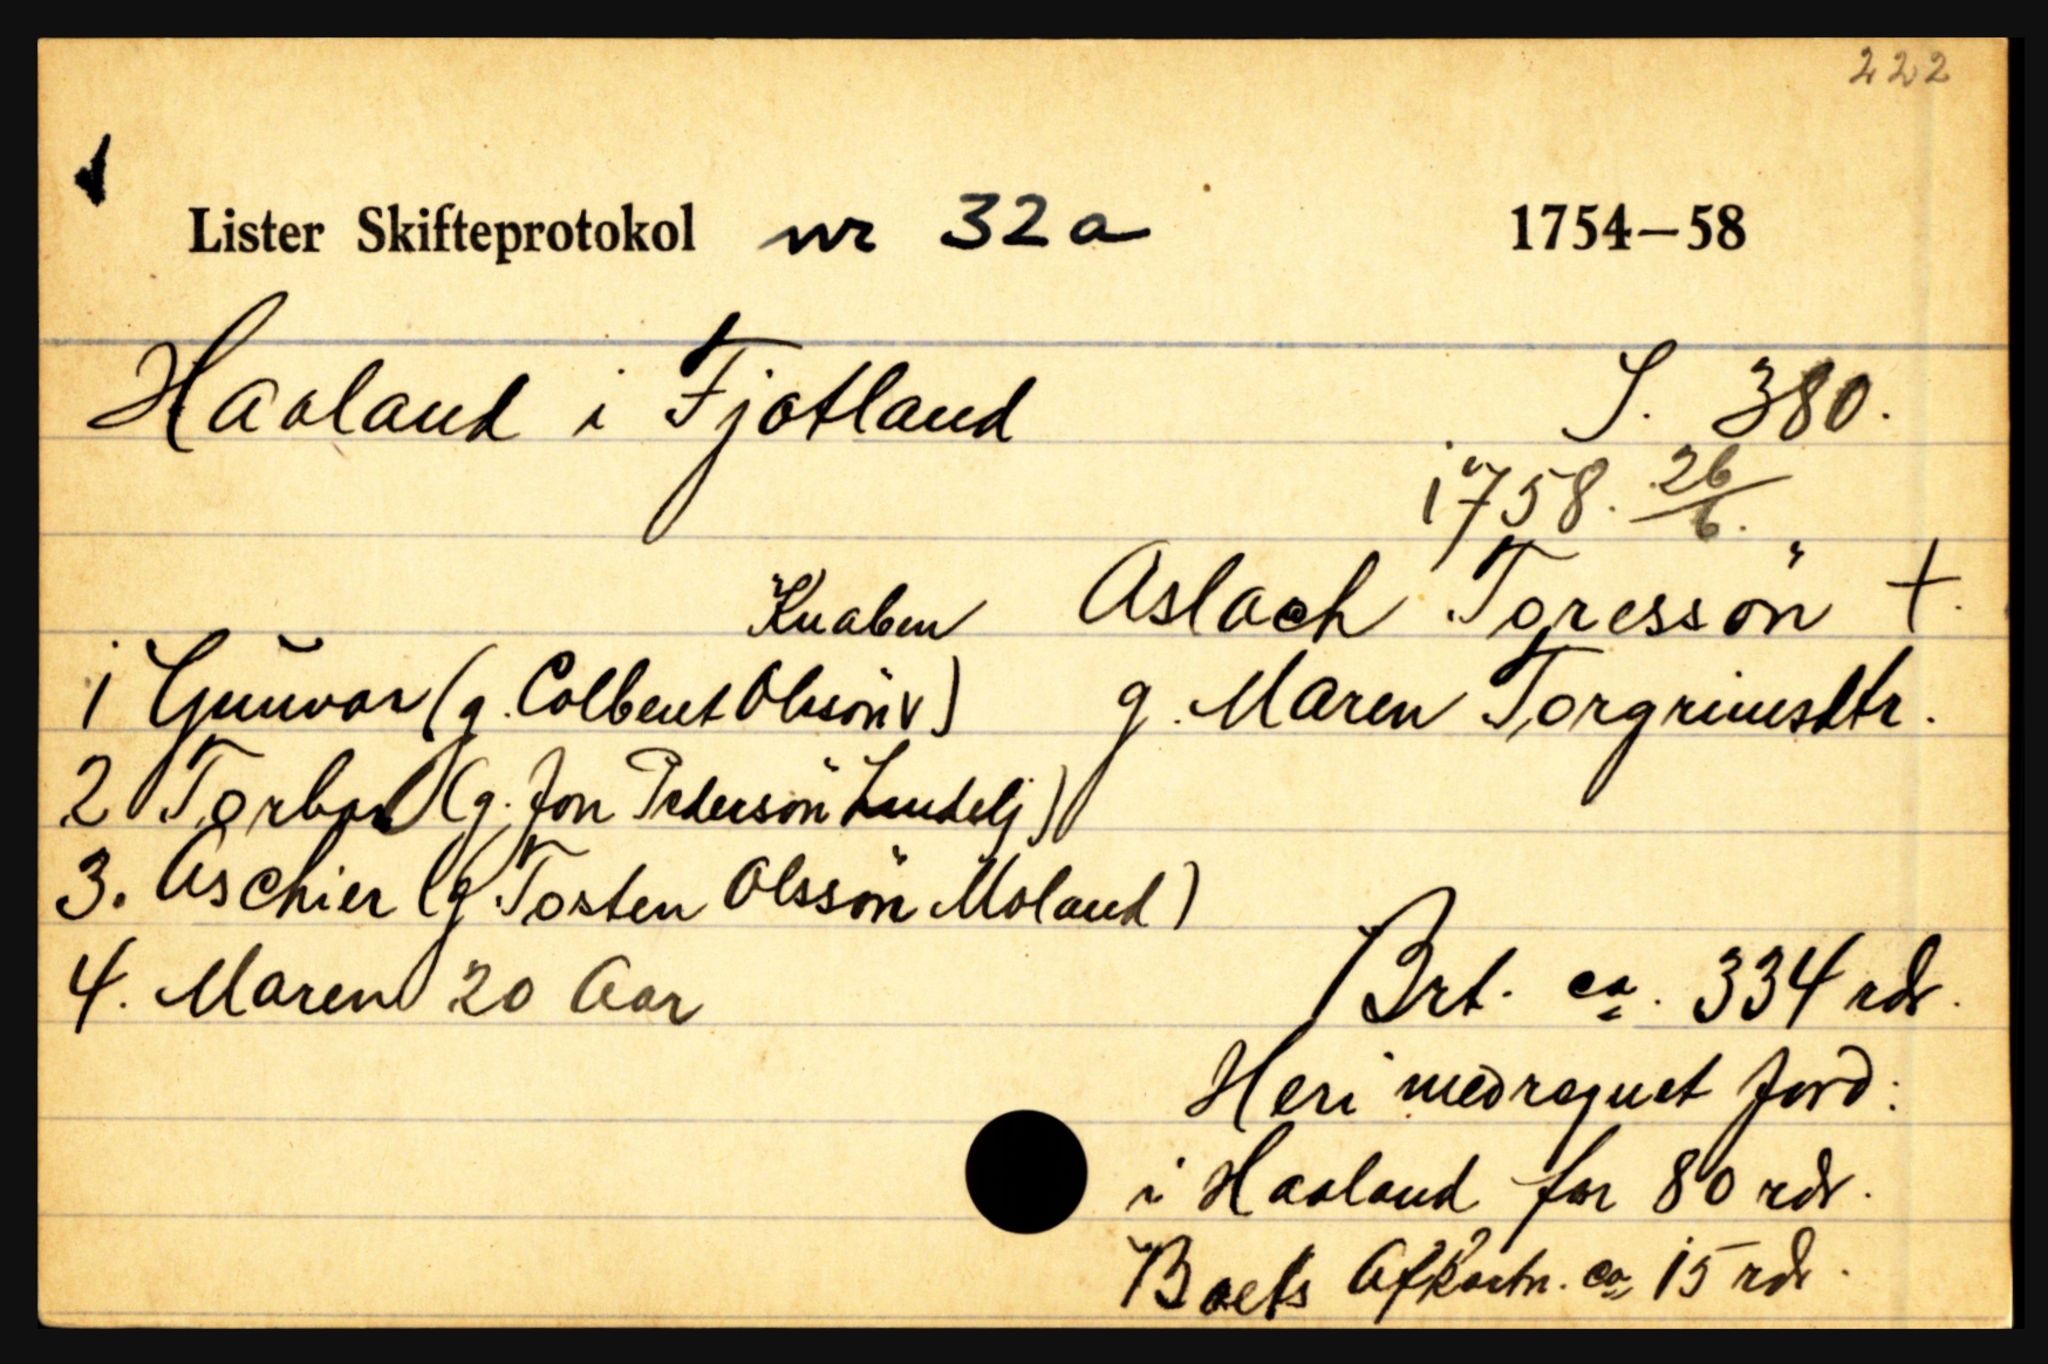 222
Lister Skifteprotokol nr 32a 1754–58
Haaland i Fjotland S. 380.
1758. 26/6.
Knaben Aslach Toressön +.
1 Gunvor (g. Colbent Olssön) g. Maren Torgrimsdtr.
2 Torbor (g. Jon Pedersön)
3. Aschier (g. Tosten Olssön Moland)
4. Maren 20 Aar
Brt. ca. 334 rdr.
Heri medregnet Jord:
i Haaland for 80 rdr.
Boets Afkortn. ca 15 rdr.